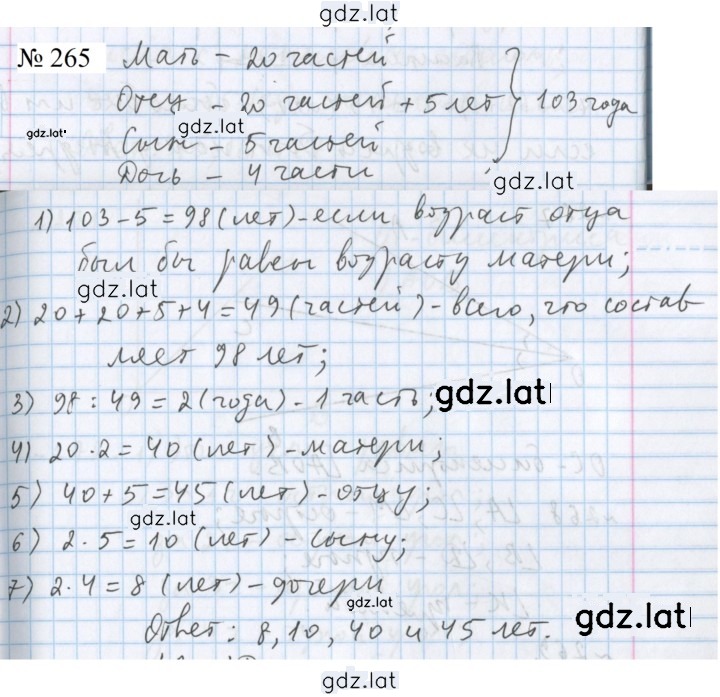 gdz.lat
№ 265 Мать – 20 частей
Отец – 20 частей + 5 лет } 103 года
gdz.lat
gdz.lat
Сын – 5 частей
gdz.lat
Дочь – 4 части
1) 103 – 5 = 98 (лет) – если возраст отца
был бы равен возрасту матери;
gdz.lat
2) 20 + 20 + 5 + 4 = 49 (частей) – всего, что состав
ляет 98 лет;
gdz.lat
3) 98 : 49 = 2 (года) – 1 часть;
4) 20 · 2 = 40 (лет) – матери;
5) 40 + 5 = 45 (лет) – отцу;
gdz.lat
6) 2 · 5 = 10 (лет) – сыну;
7) 2 · 4 = 8 (лет) – дочери
gdz.lat
gdz.lat
Ответ: 8, 10, 40 и 45 лет.
gdz.lat